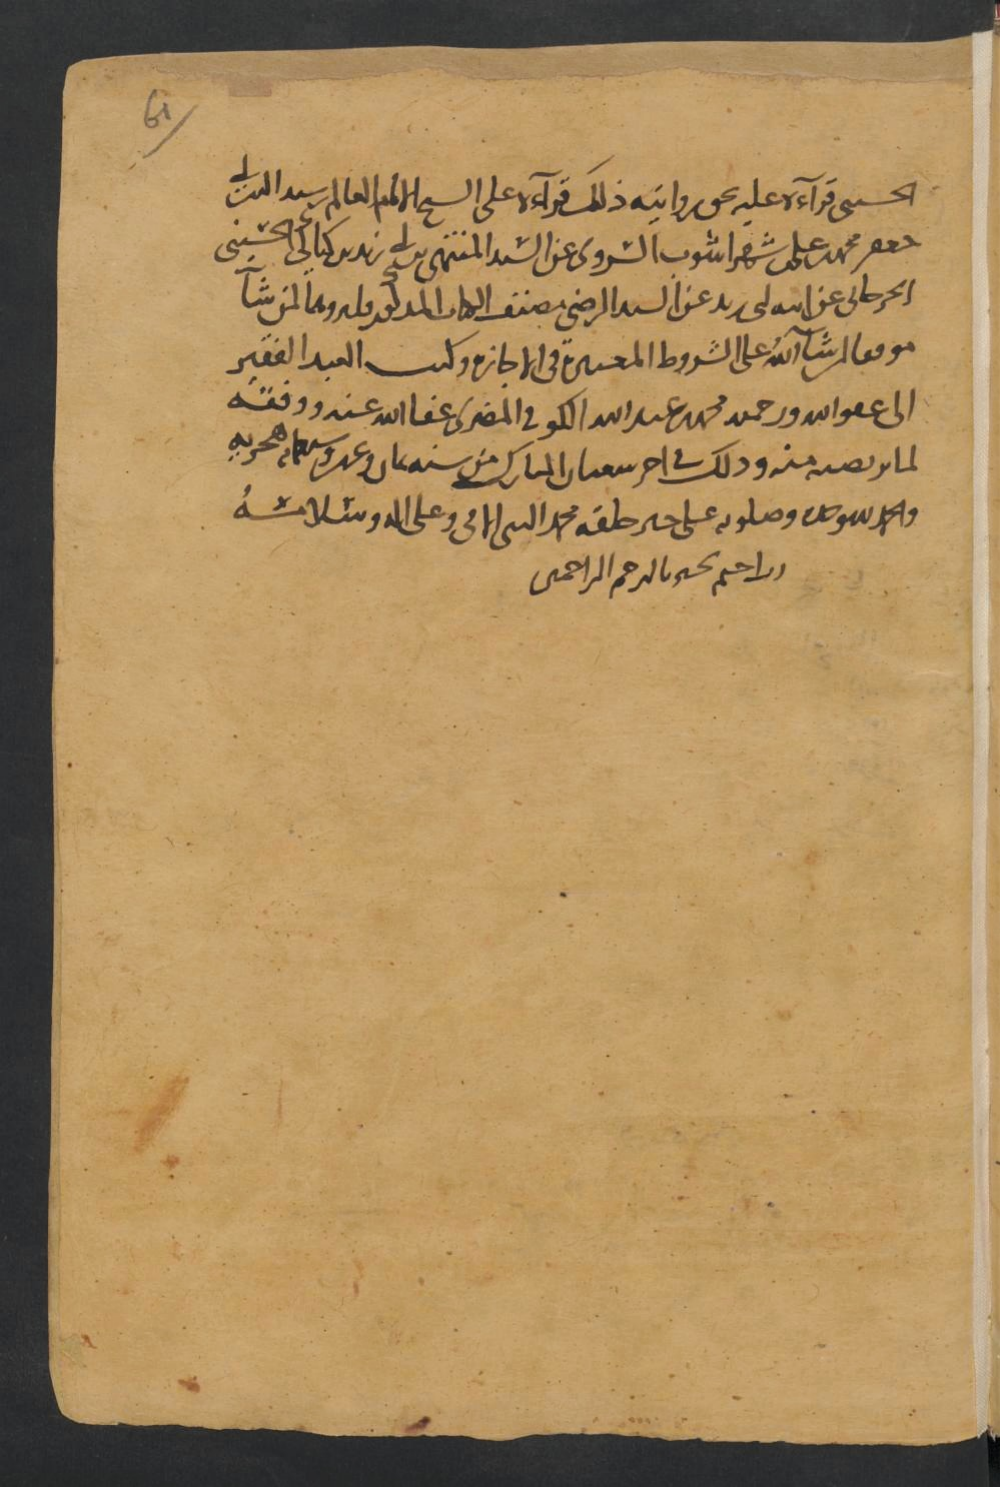 61
الحسيني قرآءة عليه بحق روايته ذلك قرآءة على الشيخ الامام العالم رشيد الدين ابي
جعفر محمد بن علي بن شهراشوب السروي عن السيد المنتهى بن ابي زيد بن كيابكي الحسيني
الجرجاني عن ابيه ابي زيد عن السيد الرضي مصنف الكتاب المذكور فليروه لمن شآ
موفقا ان شآ الله على الشروط المعتبرة في الاجازة وكتب العبد الفقير
الى عفو الله ورحمته محمد بن عبد الله الكوفي المضري عفا الله عنه ووفقه
لما يرتضيه منه وذلك في اخر شعبان المبارك من سنه ثمان وعشر وسبعمائة هجرية
والحمد لله وحده وصلوته على خير خلقه محمد النبي الامي وعلى اله وسلامه
واختم بخير يا ارحم الراحمين